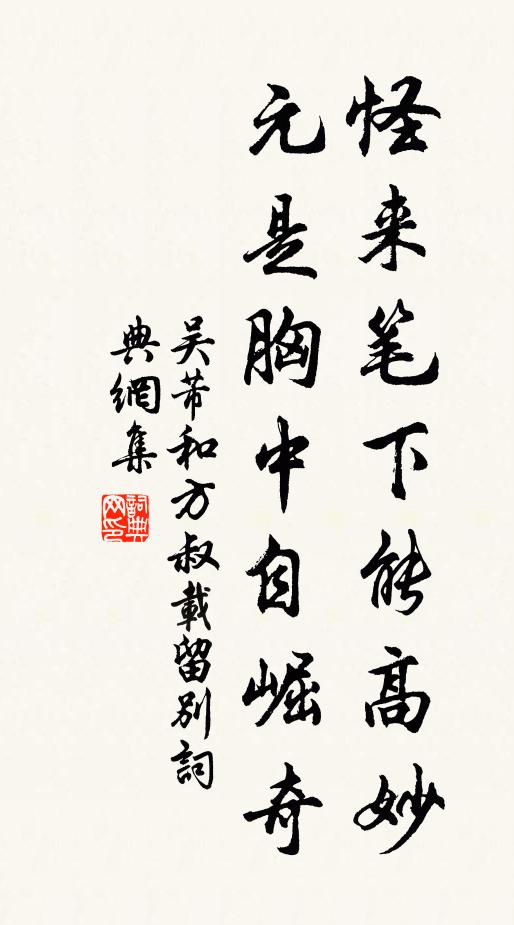 怪来笔下能高妙
元是胸中自崛奇
吴芾和方叔載留别詞
典網集
詞典網印